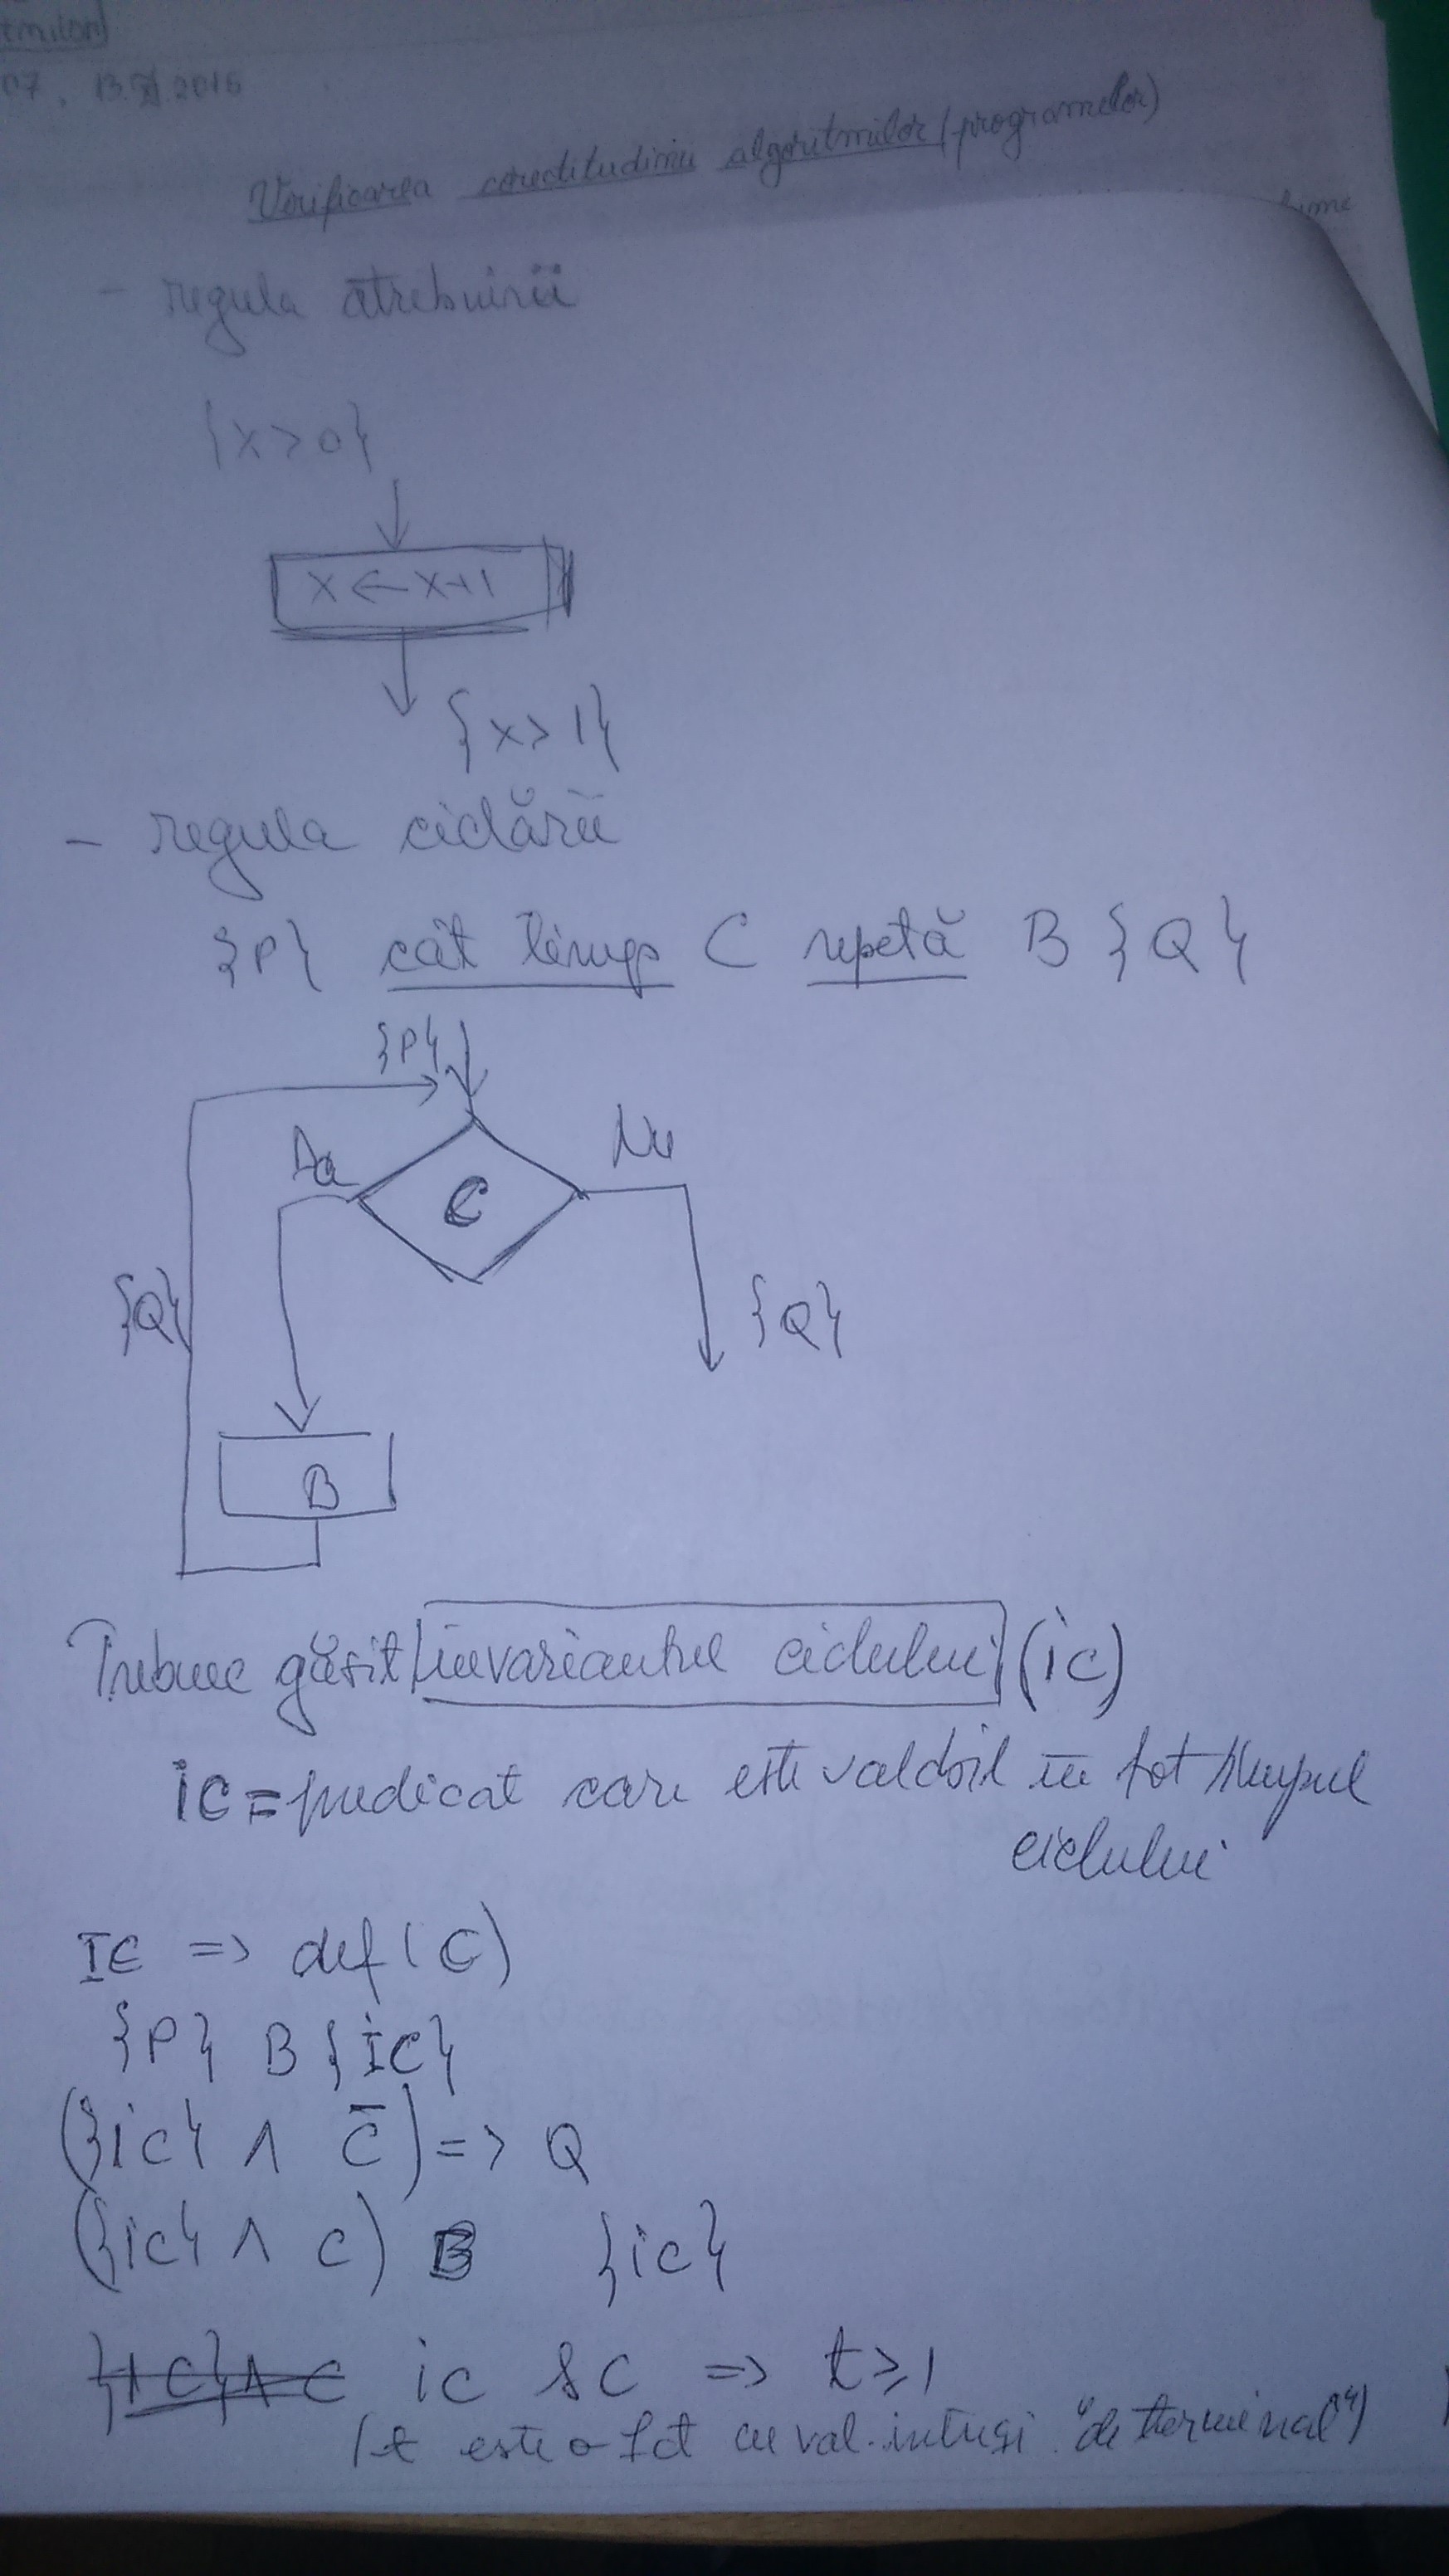 07, 13.XI.2015
Verificarea corectitudinii algoritmilor (programelor)
- regula atribuirii
{x>0}
x ← x+1
{x>1}
- regula ciclării
{P} cât timp C repetă B {Q}
{P}
Da
Nu
C
{Q}
{Q}
B
Trebuie găsit invariantul ciclului (ic)
ic = predicat care este valabil în tot timpul
ciclului
IC => def(C)
{P} B {ic}
({ic} ∧ C̄) => Q
({ic} ∧ C) B {ic}
{ic} ∧ C ic & C => t ≥ 1
(t este o fct cu val. întregi "de terminal")